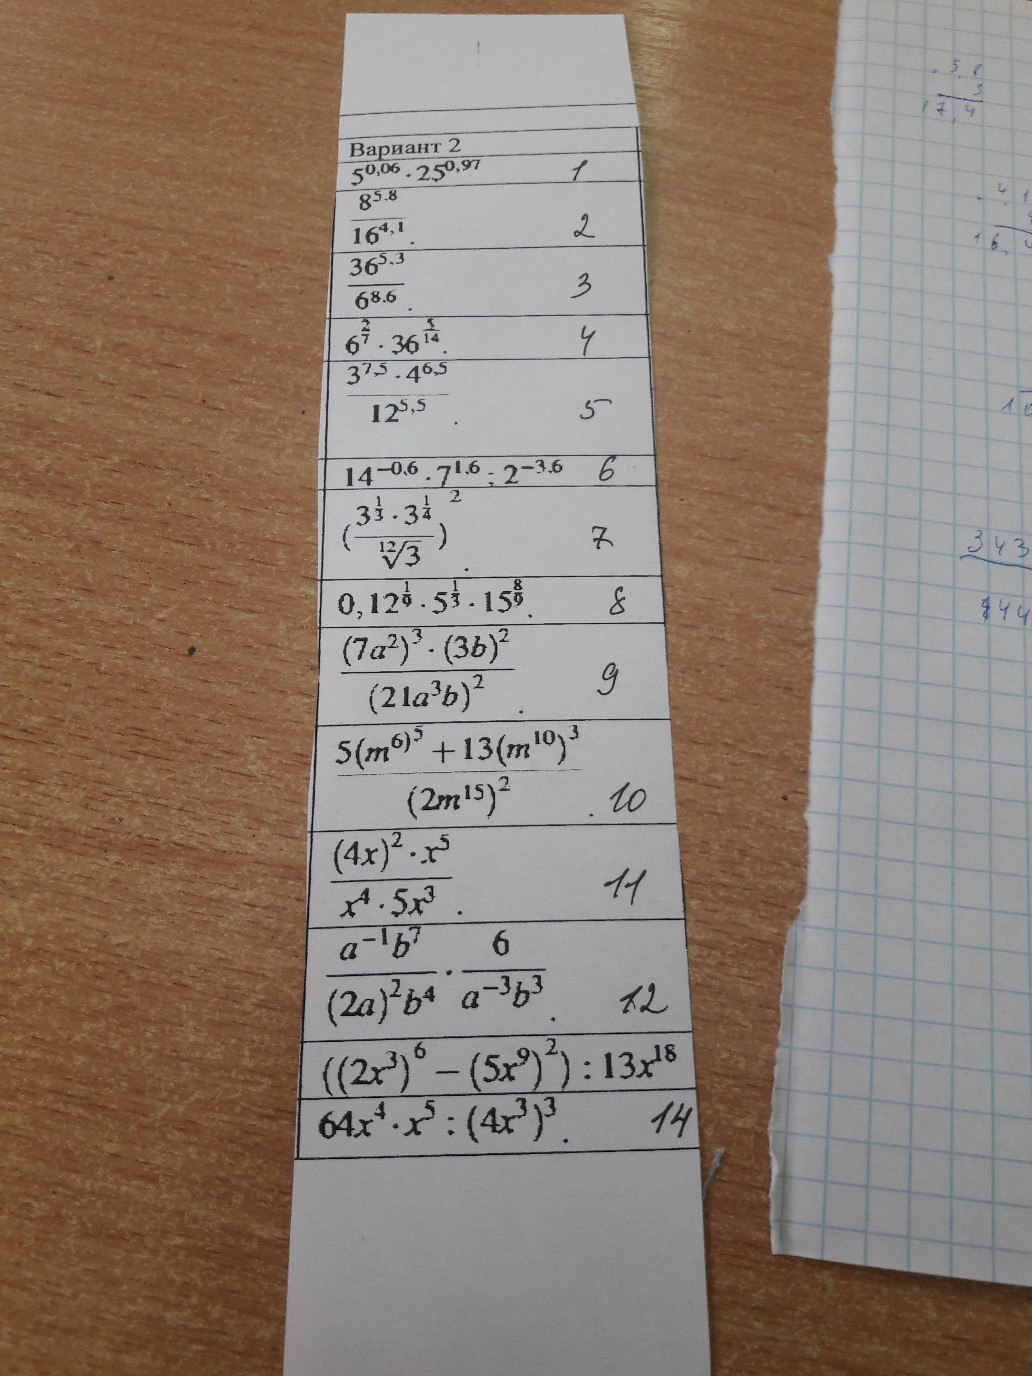 Вариант 2
5^{0,06} · 25^{0,97} 1
\frac{8^{5.8}}{16^{4,1}}. 2
\frac{36^{5.3}}{6^{8.6}}. 3
6^{\frac{2}{7}} · 36^{\frac{5}{14}}. 4
\frac{3^{7,5} · 4^{6,5}}{12^{5,5}}. 5
14^{-0.6} · 7^{1.6} : 2^{-3.6} 6
(\frac{3^{\frac{1}{3}} · 3^{\frac{1}{4}}}{\sqrt[12]{3}})^2. 7
0,12^{\frac{1}{9}} · 5^{\frac{1}{3}} · 15^{\frac{8}{9}}. 8
\frac{(7a^2)^3 · (3b)^2}{(21a^3b)^2}. 9
\frac{5(m^{6)^5} + 13(m^{10})^3}{(2m^{15})^2}. 10
\frac{(4x)^2 · x^5}{x^4 · 5x^3}. 11
\frac{a^{-1}b^7}{(2a)^2b^4} · \frac{6}{a^{-3}b^3}. 12
((2x^3)^6 − (5x^9)^2) : 13x^{18}
64x^4 · x^5 : (4x^3)^3. 14
5,8
3
17,4
343